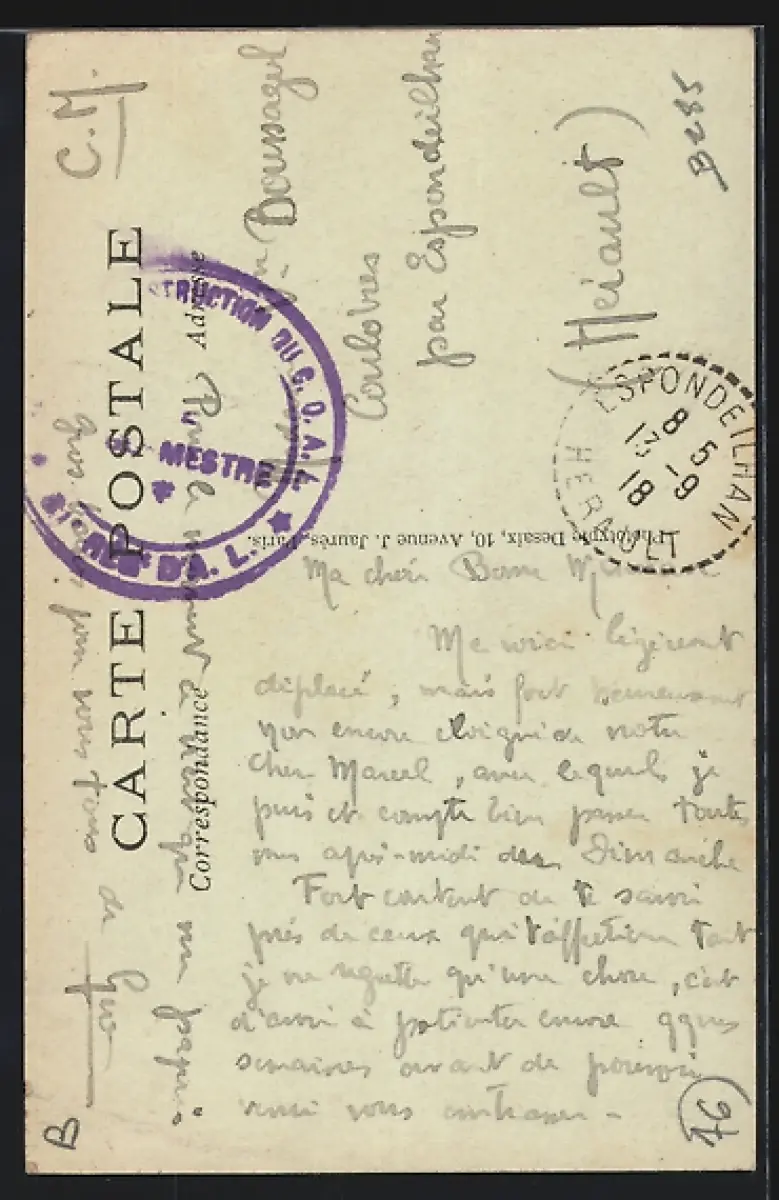 CARTE POSTALE
Correspondance
Adresse
C.M.
Boussagol
Coulobres
par Espondeilhan
(Hérault)
B285
ESPONDEILHAN
8 5
13 -9
18
HERAULT
TRUCTION DU C.O.A.L.
MESTRE
D'A. L.
Phototypie Desaix, 10, Avenue J. Jaurès, Paris.
Ma chère Bonne
Me voici légèrement
déplacé, mais fort heureusement
non encore éloigné de notre
cher Marcel, avec lequel je
puis et compte bien passer toutes
mes après-midi des Dimanche
Fort content de te savoir
près de ceux qui t'affectionne tant
je ne regrette qu'une chose, c'est
d'avoir à patienter encore qques
semaines avant de pouvoir
venir vous embrasser -
pour vous tous de
B
76